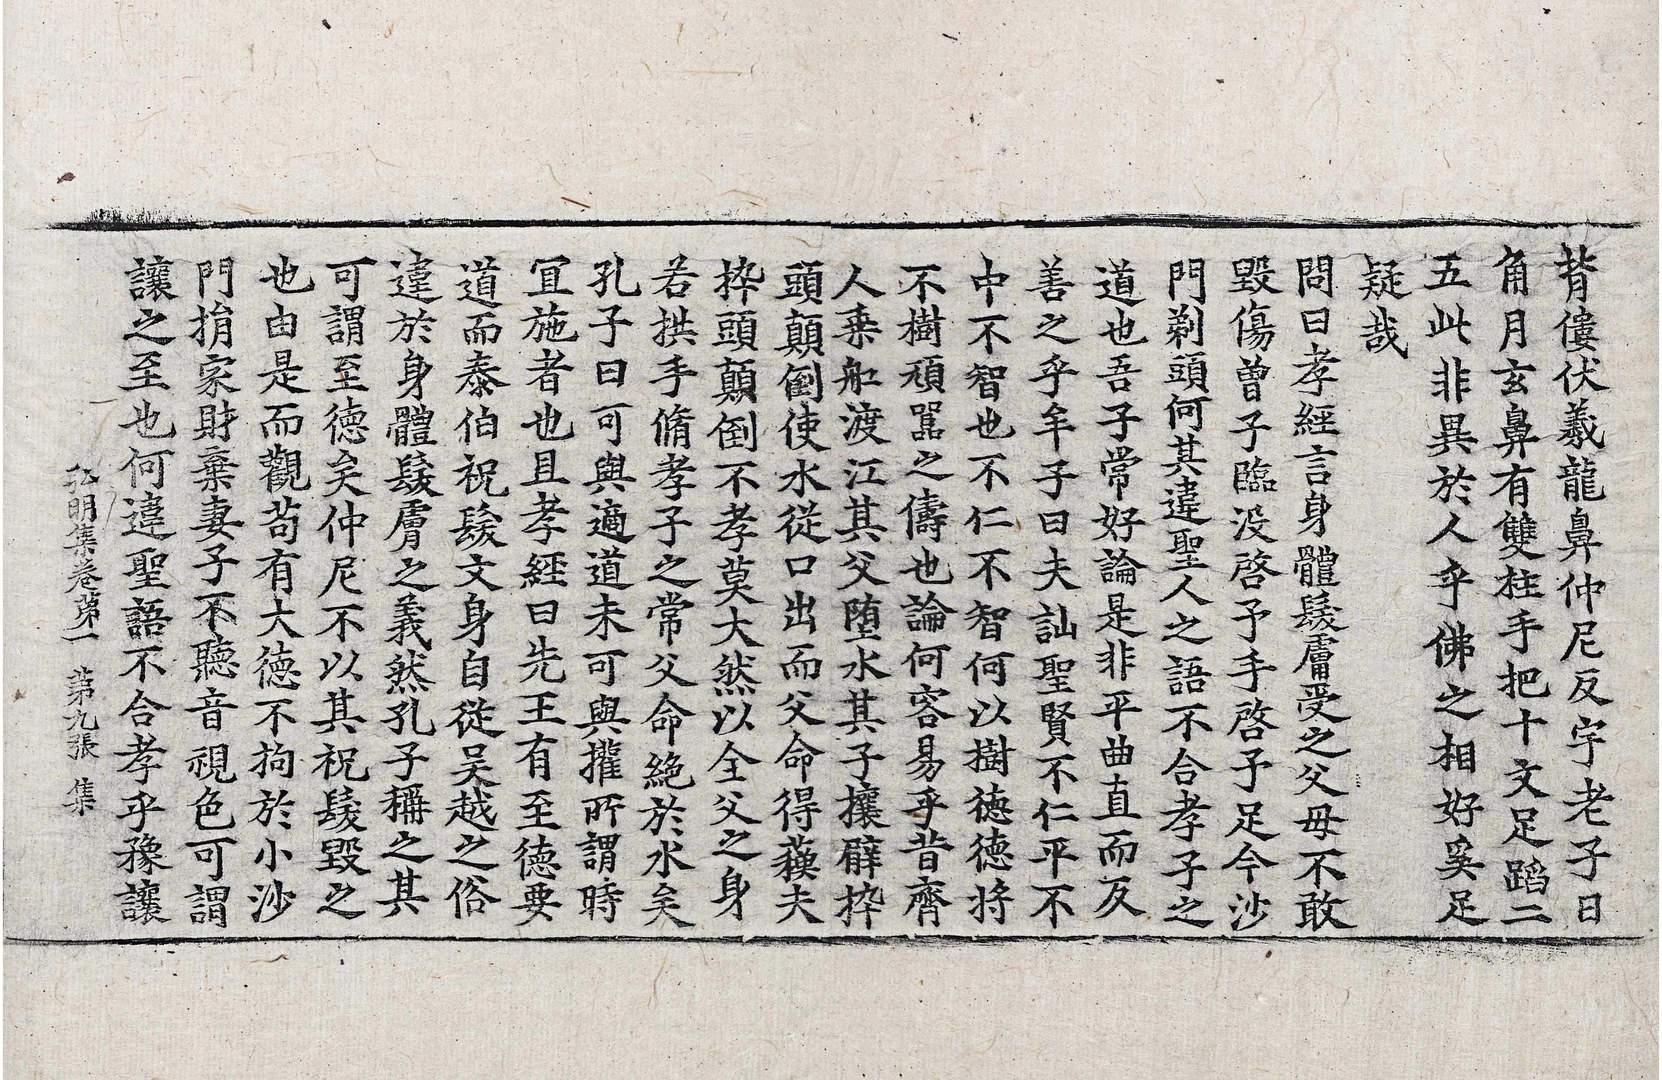 背僂伏羲龍鼻仲尼反宇老子日
角月玄鼻有雙柱手把十文足蹈二
五此非異於人乎佛之相好奚足
疑哉
問曰孝經言身體髮膚受之父母不敢
毀傷曾子臨没啓予手啓予足今沙
門剃頭何其違聖人之語不合孝子之
道也吾子常好論是非平曲直而反
善之乎牟子曰夫訕聖賢不仁平不
中不智也不仁不智何以樹德德將
不樹頑嚚之儔也論何容易乎昔齊
人乘舩渡江其父堕水其子攘臂捽
頭顛倒使水從口出而父命得蘓夫
捽頭顛倒不孝莫大然以全父之身
若拱手脩孝子之常父命絶於水矣
孔子曰可與適道未可與權所謂時
冝施者也且孝經曰先王有至德要
道而泰伯祝髮文身自從吴越之俗
違於身體髮膚之義然孔子稱之其
可謂至德矣仲尼不以其祝髮毀之
也由是而觀苟有大德不拘於小沙
門捐家財棄妻子不聽音視色可謂
讓之至也何違聖語不合孝乎豫讓
弘明集卷第一 第九張 集